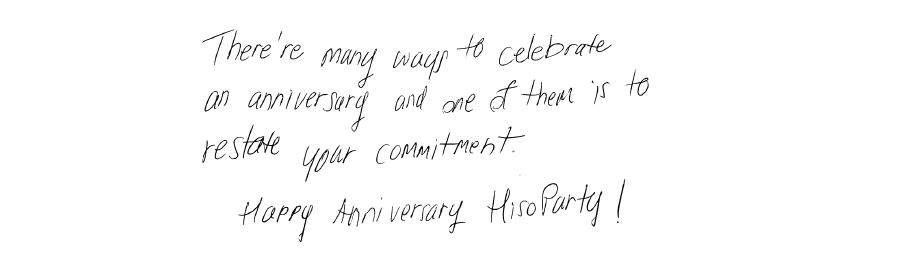 There're many ways to celebrate
an anniversary and one of them is to
restate your commitment.
Happy Anniversary HisoParty!